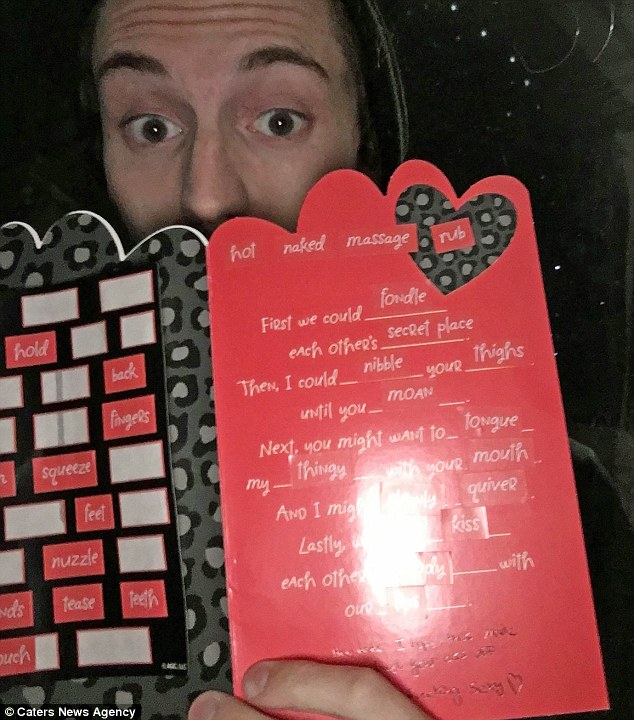 hot naked massage rub
First we could fondle
each other's secret place
Then, I could nibble your thighs
until you moan
Next, you might want to tongue
my thingy with your mouth
And I quiver
Lastly, kiss
each other with
our
hold
back
fingers
squeeze
feet
nuzzle
tease teeth
© Caters News Agency